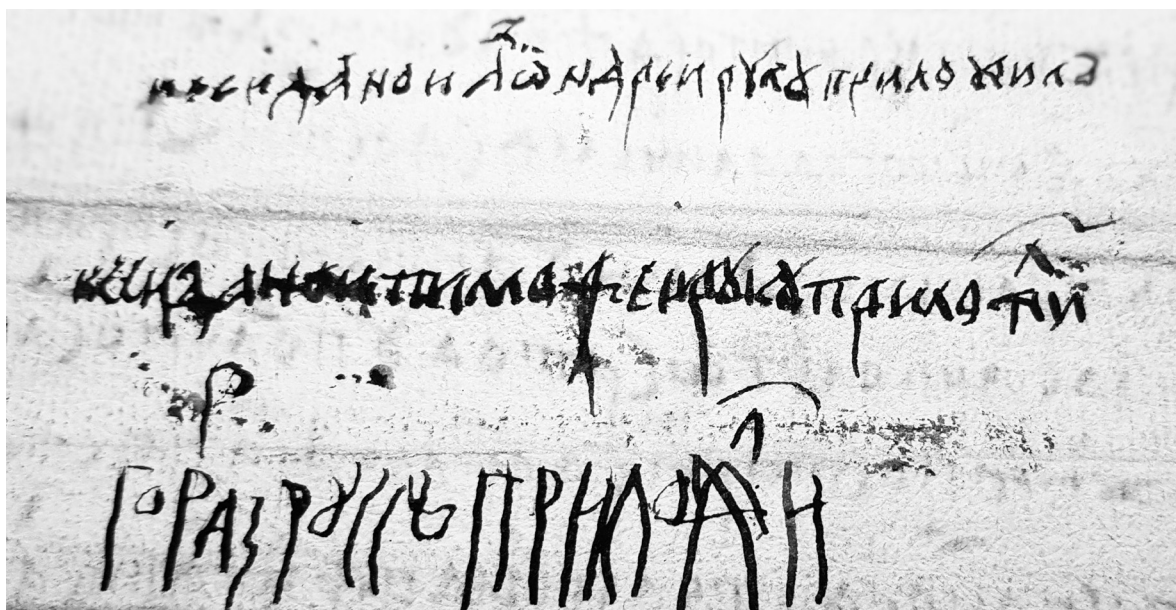 ксеи даной ѧз ѡндреи рꙋкꙋ приложилъ
ксеи даной тимофеи рꙋкꙋ приложил
гораз рꙋкꙋ приложил